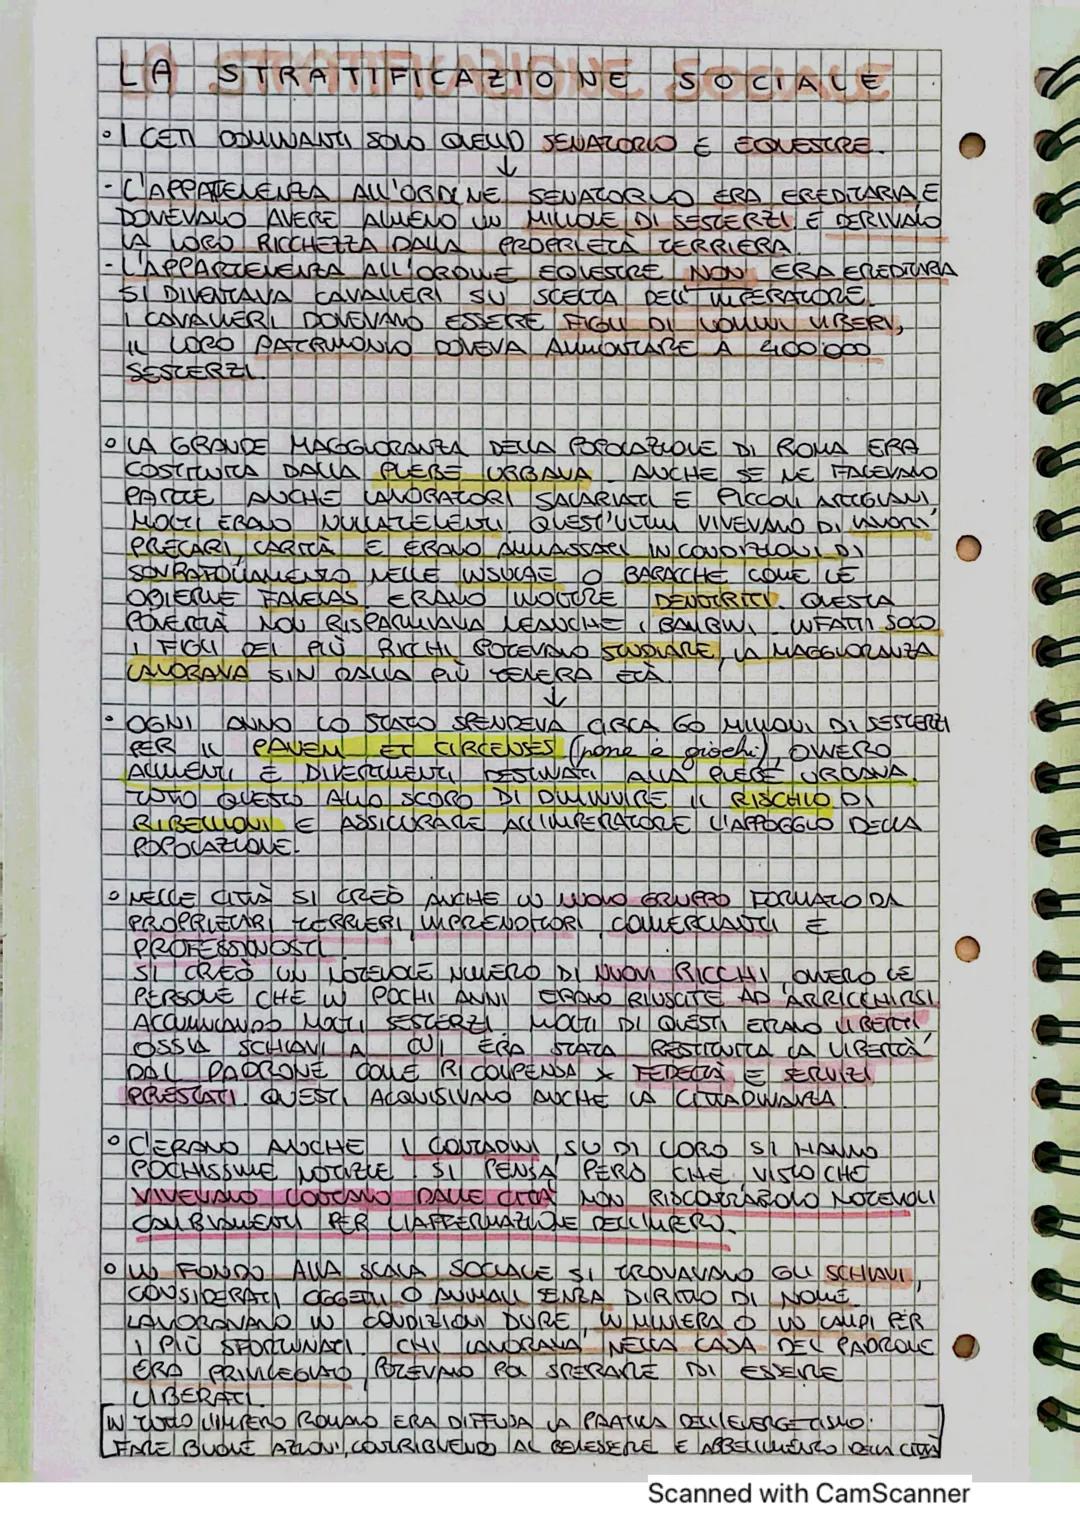 LA STRATIFICAZIONE SOCIALE
° I CETI DOMINANTI SONO QUELLO SENATORIO E EQUESTRE.
↓
- L'APPARTENENZA ALL'ORDINE SENATORIO ERA EREDITARIA E
DOVEVANO AVERE ALMENO UN MILIONE DI SESTERZI E DERIVANO
LA LORO RICCHEZZA DALLA PROPRIETÀ TERRIERA.
- L'APPARTENENZA ALL'ORDINE EQUESTRE NON ERA EREDITARIA
SI DIVENTAVA CAVALIERI SU SCELTA DELL'IMPERATORE.
I CAVALIERI DOVEVANO ESSERE FIGLI DI UOMINI LIBERI,
IL LORO PATRIMONIO DOVEVA AMMONTARE A 400.000
SESTERZI.
° LA GRANDE MAGGIORANZA DELLA POPOLAZIONE DI ROMA ERA
COSTITUITA DALLA PLEBE URBANA. ANCHE SE NE FACEVANO
PARTE ANCHE LAVORATORI SALARIATI E PICCOLI ARTIGIANI,
MOLTI ERANO NULLATENENTI, QUEST'ULTIMI VIVEVANO DI LAVORI
PRECARI, CARITÀ E ERANO AMMASSATI IN CONDIZIONI DI
SOVRAFFOLLAMENTO NELLE INSULAE O BARACCHE COME LE
ODIERNE FAVELAS, ERANO INOLTRE DENUTRITI. QUESTA
POVERTÀ NON RISPARMIAVA NEANCHE I BAMBINI. INFATTI SOLO
I FIGLI DEI PIÙ RICCHI POTEVANO STUDIARE, LA MAGGIORANZA
LAVORAVA SIN DALLA PIÙ TENERA ETÀ.
↓
° OGNI ANNO LO STATO SPENDEVA CIRCA 60 MILIONI DI SESTERZI
PER IL PANEM ET CIRCENSES (pane e giochi), OVVERO
ALIMENTI E DIVERTIMENTI DESTINATI ALLA PLEBE URBANA.
TUTTO QUESTO ALLO SCOPO DI DIMINUIRE IL RISCHIO DI
RIBELLIONI E ASSICURARE ALL'IMPERATORE L'APPOGGIO DELLA
POPOLAZIONE.
° NELLE CITTÀ SI CREÒ ANCHE UN NUOVO GRUPPO FORMATO DA
PROPRIETARI TERRIERI, IMPRENDITORI, COMMERCIANTI E
PROFESSIONISTI.
SI CREÒ UN NOTEVOLE NUMERO DI NUOVI RICCHI, OVVERO LE
PERSONE CHE IN POCHI ANNI ERANO RIUSCITE AD ARRICCHIRSI
ACCUMULANDO MOLTI SESTERZI. MOLTI DI QUESTI ERANO LIBERTI
OSSIA SCHIAVI A CUI ERA STATA RESTITUITA LA LIBERTÀ
DAL PADRONE COME RICOMPENSA X FEDELTÀ E SERVIZI
PRESTATI. QUESTI ACQUISIVANO ANCHE LA CITTADINANZA.
° C'ERANO ANCHE I CONTADINI, SU DI LORO SI HANNO
POCHISSIME NOTIZIE. SI PENSA PERÒ CHE VISTO CHE
VIVEVANO LONTANO DALLE CITTÀ NON RISCONTRARONO NOTEVOLI
CAMBIAMENTI PER L'AFFERMAZIONE DELL'IMPERO.
° IN FONDO ALLA SCALA SOCIALE SI TROVAVANO GLI SCHIAVI,
CONSIDERATI OGGETTI O ANIMALI SENZA DIRITTO DI NOME.
LAVORAVANO IN CONDIZIONI DURE, IN MINIERA O IN CAMPI PER
I PIÙ SFORTUNATI. CHI LAVORAVA NELLA CASA DEL PADRONE
ERA PRIVILEGIATO, POTEVANO POI SPERARE DI ESSERE
LIBERATI.
IN TUTTO L'IMPERO ROMANO ERA DIFFUSA LA PRATICA DELL'EVERGETISMO:
FARE BUONE AZIONI, CONTRIBUENDO AL BENESSERE E ABBELLIMENTO DELLA CITTÀ
Scanned with CamScanner